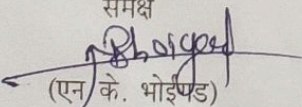 समक्ष
(एन. के. भोईपड)